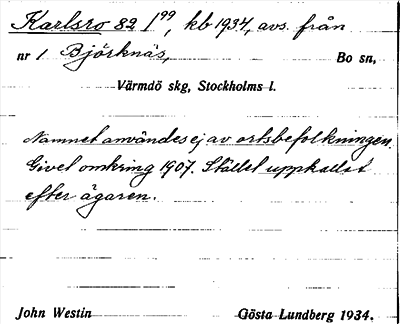 Karlsro 82 1⁹⁹, kb 1934, avs. från
nr 1 Björknäs, Bo sn,
Värmdö skg, Stockholms l.
Namnet användes ej av ortsbefolkningen.
Givet omkring 1907. Stället uppkallat
efter ägaren.
John Westin Gösta Lundberg 1934.